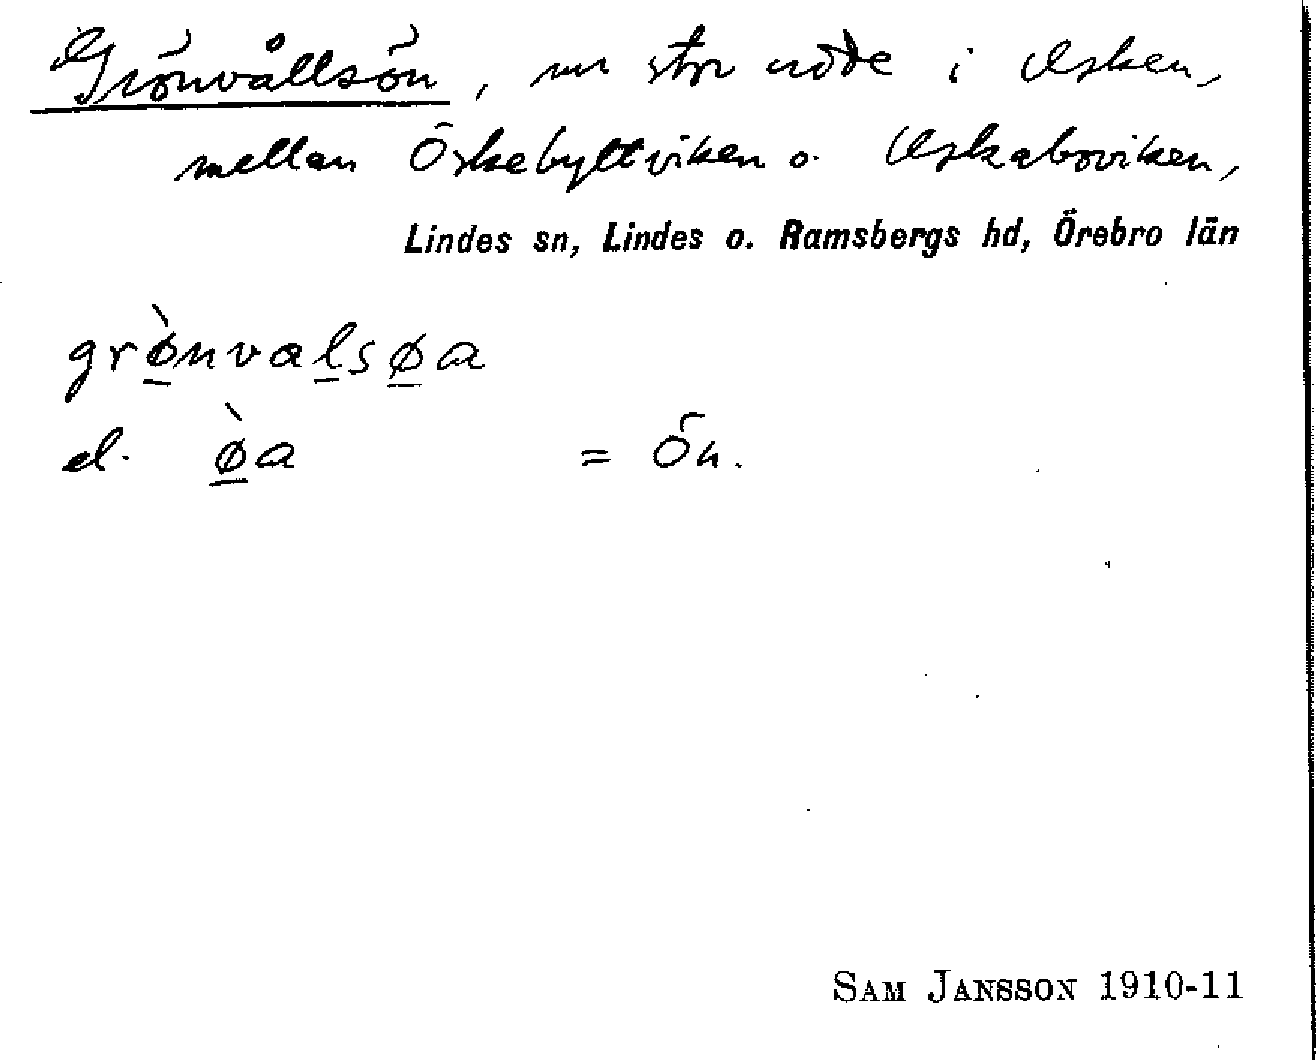 Grönvållsön, en stor udde i Usken,
mellan Öskebyttviken o. Uskaboviken,
Lindes sn, Lindes o. Ramsbergs hd, Örebro län
grø̀nvalsøa
el. ø̀a = Ön.
SAM JANSSON 1910-11